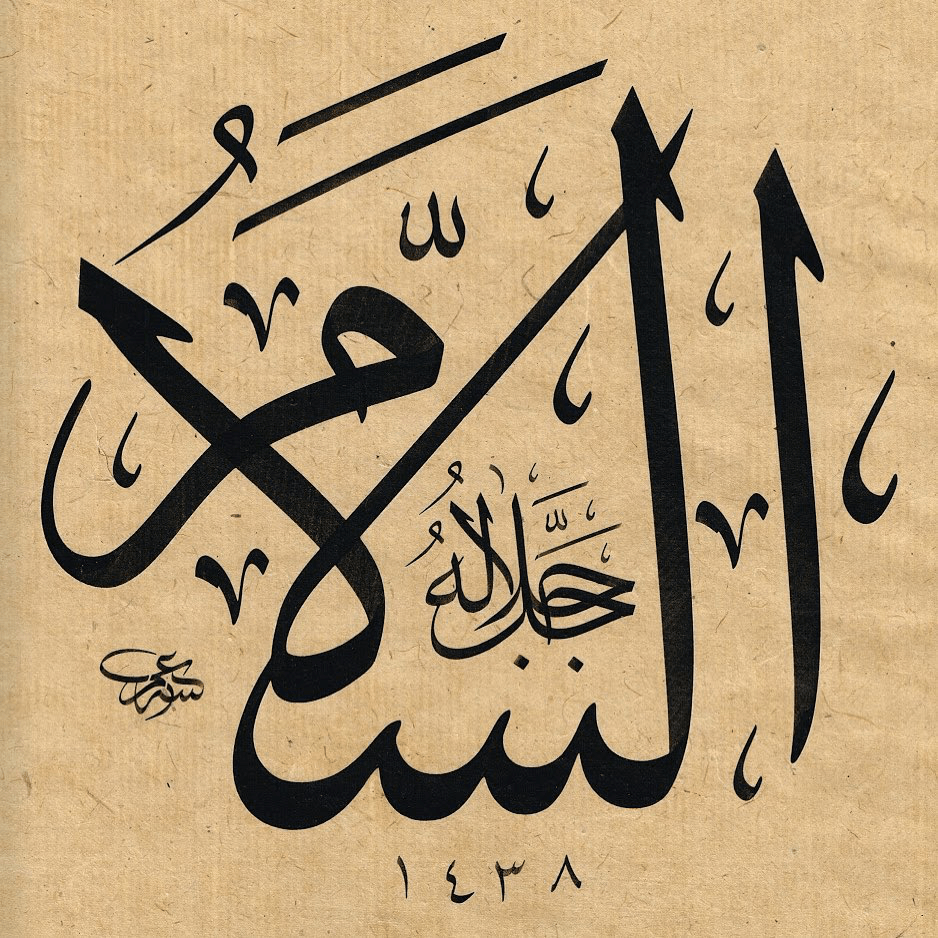 السَّلَامُ
جَلَّ جَلَالُهُ
١٤٣٨